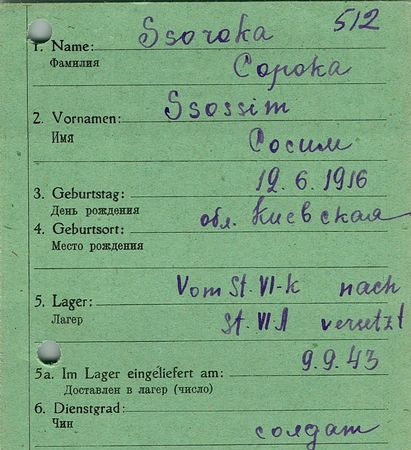 512
1. Name: Ssoroka
Фамилия Сорока
2. Vornamen: Ssossim
Имя Сосим
3. Geburtstag: 12.6.1916
День рождения обл. Киевская
4. Geburtsort:
Место рождения
5. Lager: Vom St. VI-K nach
Лагерь St. VI A versetzt
5a. Im Lager eingeliefert am: 9.9.43
Доставлен в лагерь (число)
6. Dienstgrad:
Чин солдат